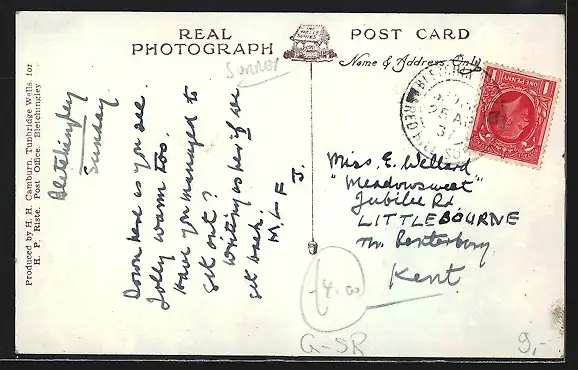 REAL PHOTOGRAPH
POST CARD
Name & Address Only
SURREY
Produced by H. H. Camburn, Tunbridge Wells, for
H. P. Riste, Post Office, Bletchingley
Bletchingley
Sunday
Down here as you see.
Jolly warm too.
Have you managed to
get out?
Writing is her if we
get back.
M. L. F. J.
Miss E. Wellard
"Meadowsweet"
Jubilee Rd.
LITTLEBOURNE
Nr. Canterbury
Kent.
ONE PENNY
25 AP
37
4.00
G-SR
9,-